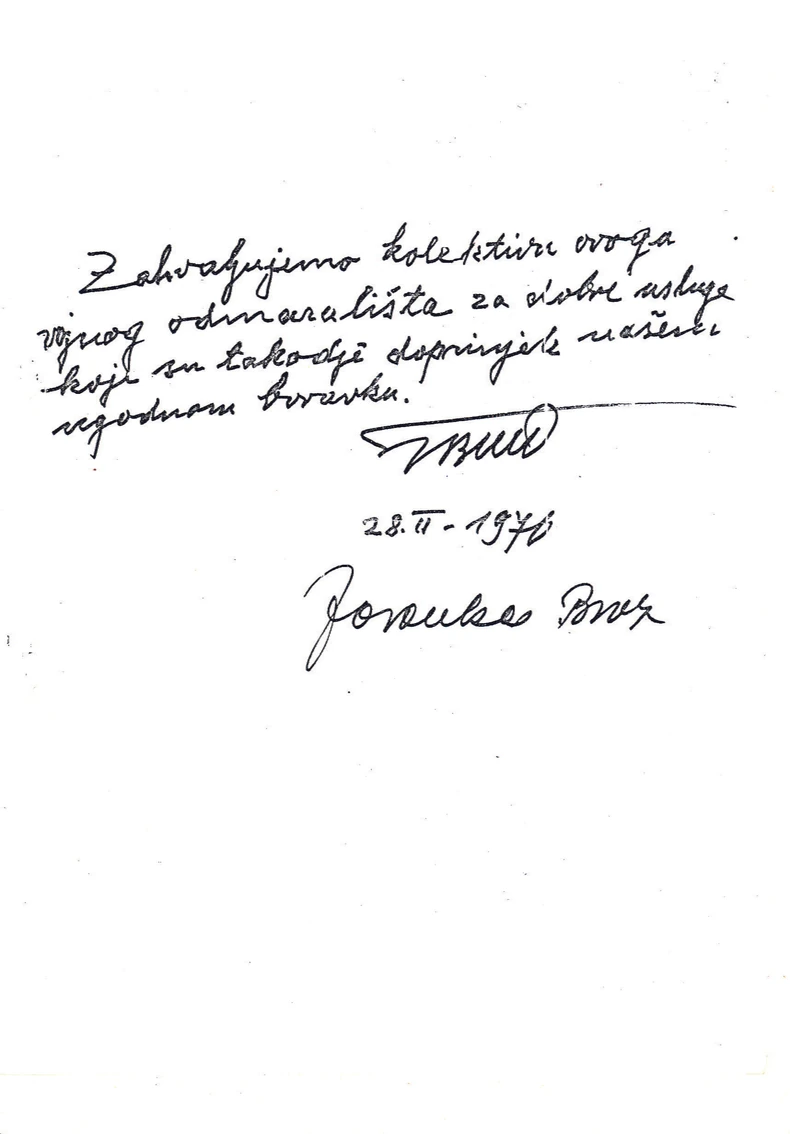 Zahvaljujemo kolektivu ovoga
vojnog odmarališta za dobre usluge
koje su takodje doprinjele našem
ugodnom boravku.
28.II - 1976
Jovanka Broz